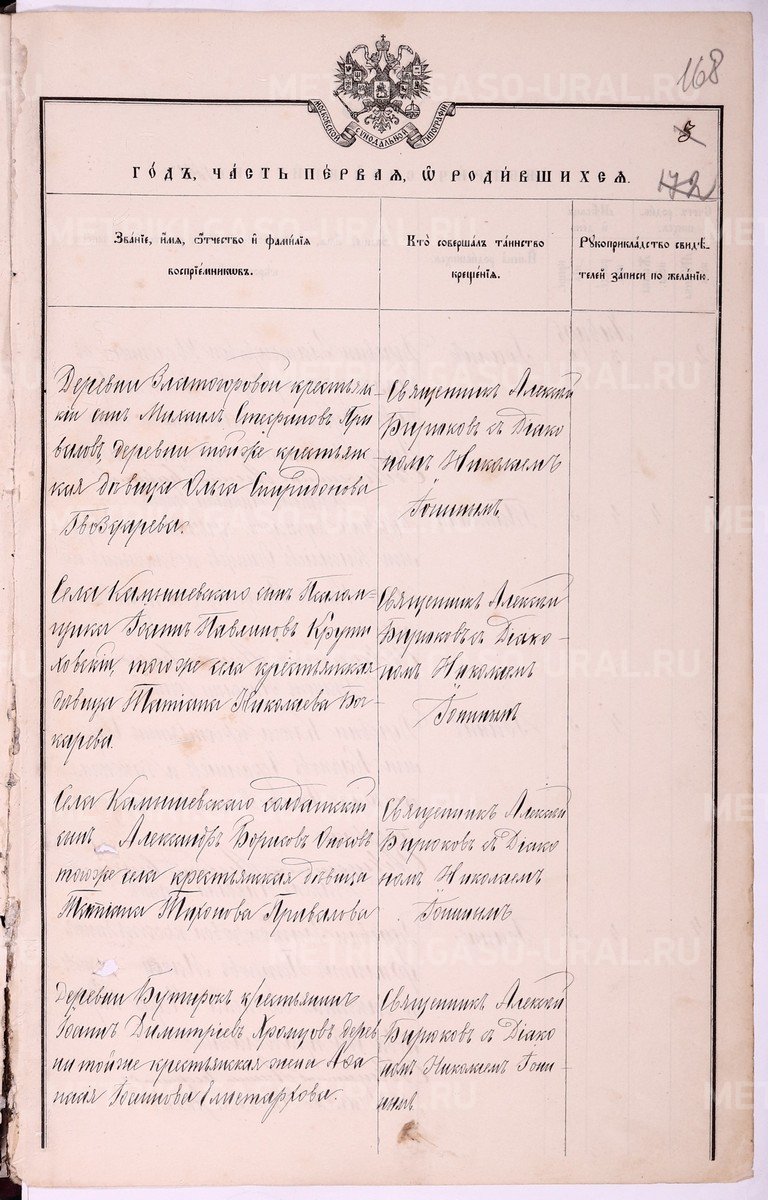 168
МОСКОВСКОЙ СѴНОДАЛЬНОЙ ТИПОГРАФІИ
5
ГО́ДЪ, ЧА́СТЬ ПЕ́РВАЯ, Ѿ РОДИ́ВШИХСЯ.
172
Зва́нїе, и́мѧ, ѻ҆́тчество и҆ фами́лїѧ
воспрїе́мникѡвъ.
Кто̀ соверша́лъ та́инство
креще́нїѧ.
Рꙋкоприкла́дство свидѣ́-
телей за́писи по жела́нїю.
Деревни Златогоровой крестьян-
скій сынъ Михаилъ Стефановъ При-
валовъ, деревни тойже крестьян-
ская дѣвица Ольга Спиридонова
Гвоздарева.
Священникъ Алексій
Бирюковъ съ Діако-
номъ Николаемъ
Топинымъ
Села Камышевскаго сынъ Псалом-
щика Іоаннъ Павлиновъ Крути-
ховскій, тогоже села крестьянская
дѣвица Татіана Николаева Бо-
карева.
Священникъ Алексій
Бирюковъ съ Діако-
номъ Николаемъ
Топинымъ
Села Камышевскаго солдатскій
сынъ Александръ Борисовъ
тогоже села крестьянская дѣвица
Татіана Тихонова Привалова
Священникъ Алексій
Бирюковъ съ Діако-
номъ Николаемъ
Топинымъ
Деревни Бутырокъ крестьянинъ
Іоаннъ Димитріевъ Хромцовъ дерев
ни тойже крестьянская жена
Іоаннова Елистархова.
Священникъ Алексій
Бирюковъ съ Діако-
номъ Николаемъ Топи-
нымъ